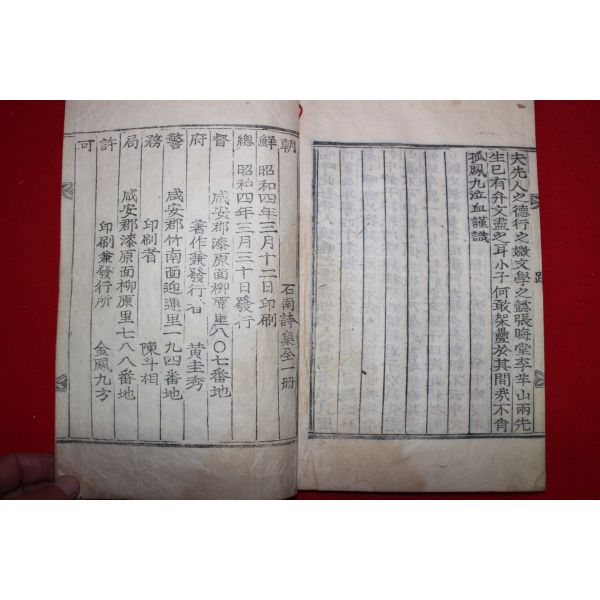 夫先人之德行之嫩文學之懿張晦堂李羊山兩先
生已有弁文盡之耳小子何敢架疊於其間哉不肖
孤鳳九泣血謹識
跋
石南詩集全一册
朝鮮總督府警務局許可
昭和四年三月十二日印刷
昭和四年三月三十日發行
咸安郡漆原面柳原里八〇七番地
著作兼發行者 黃圭秀
咸安郡竹南面迎運里一九四番地
印刷者 陳斗相
咸安郡漆原面柳原里七八八番地
印刷兼發行所 金鳳九方